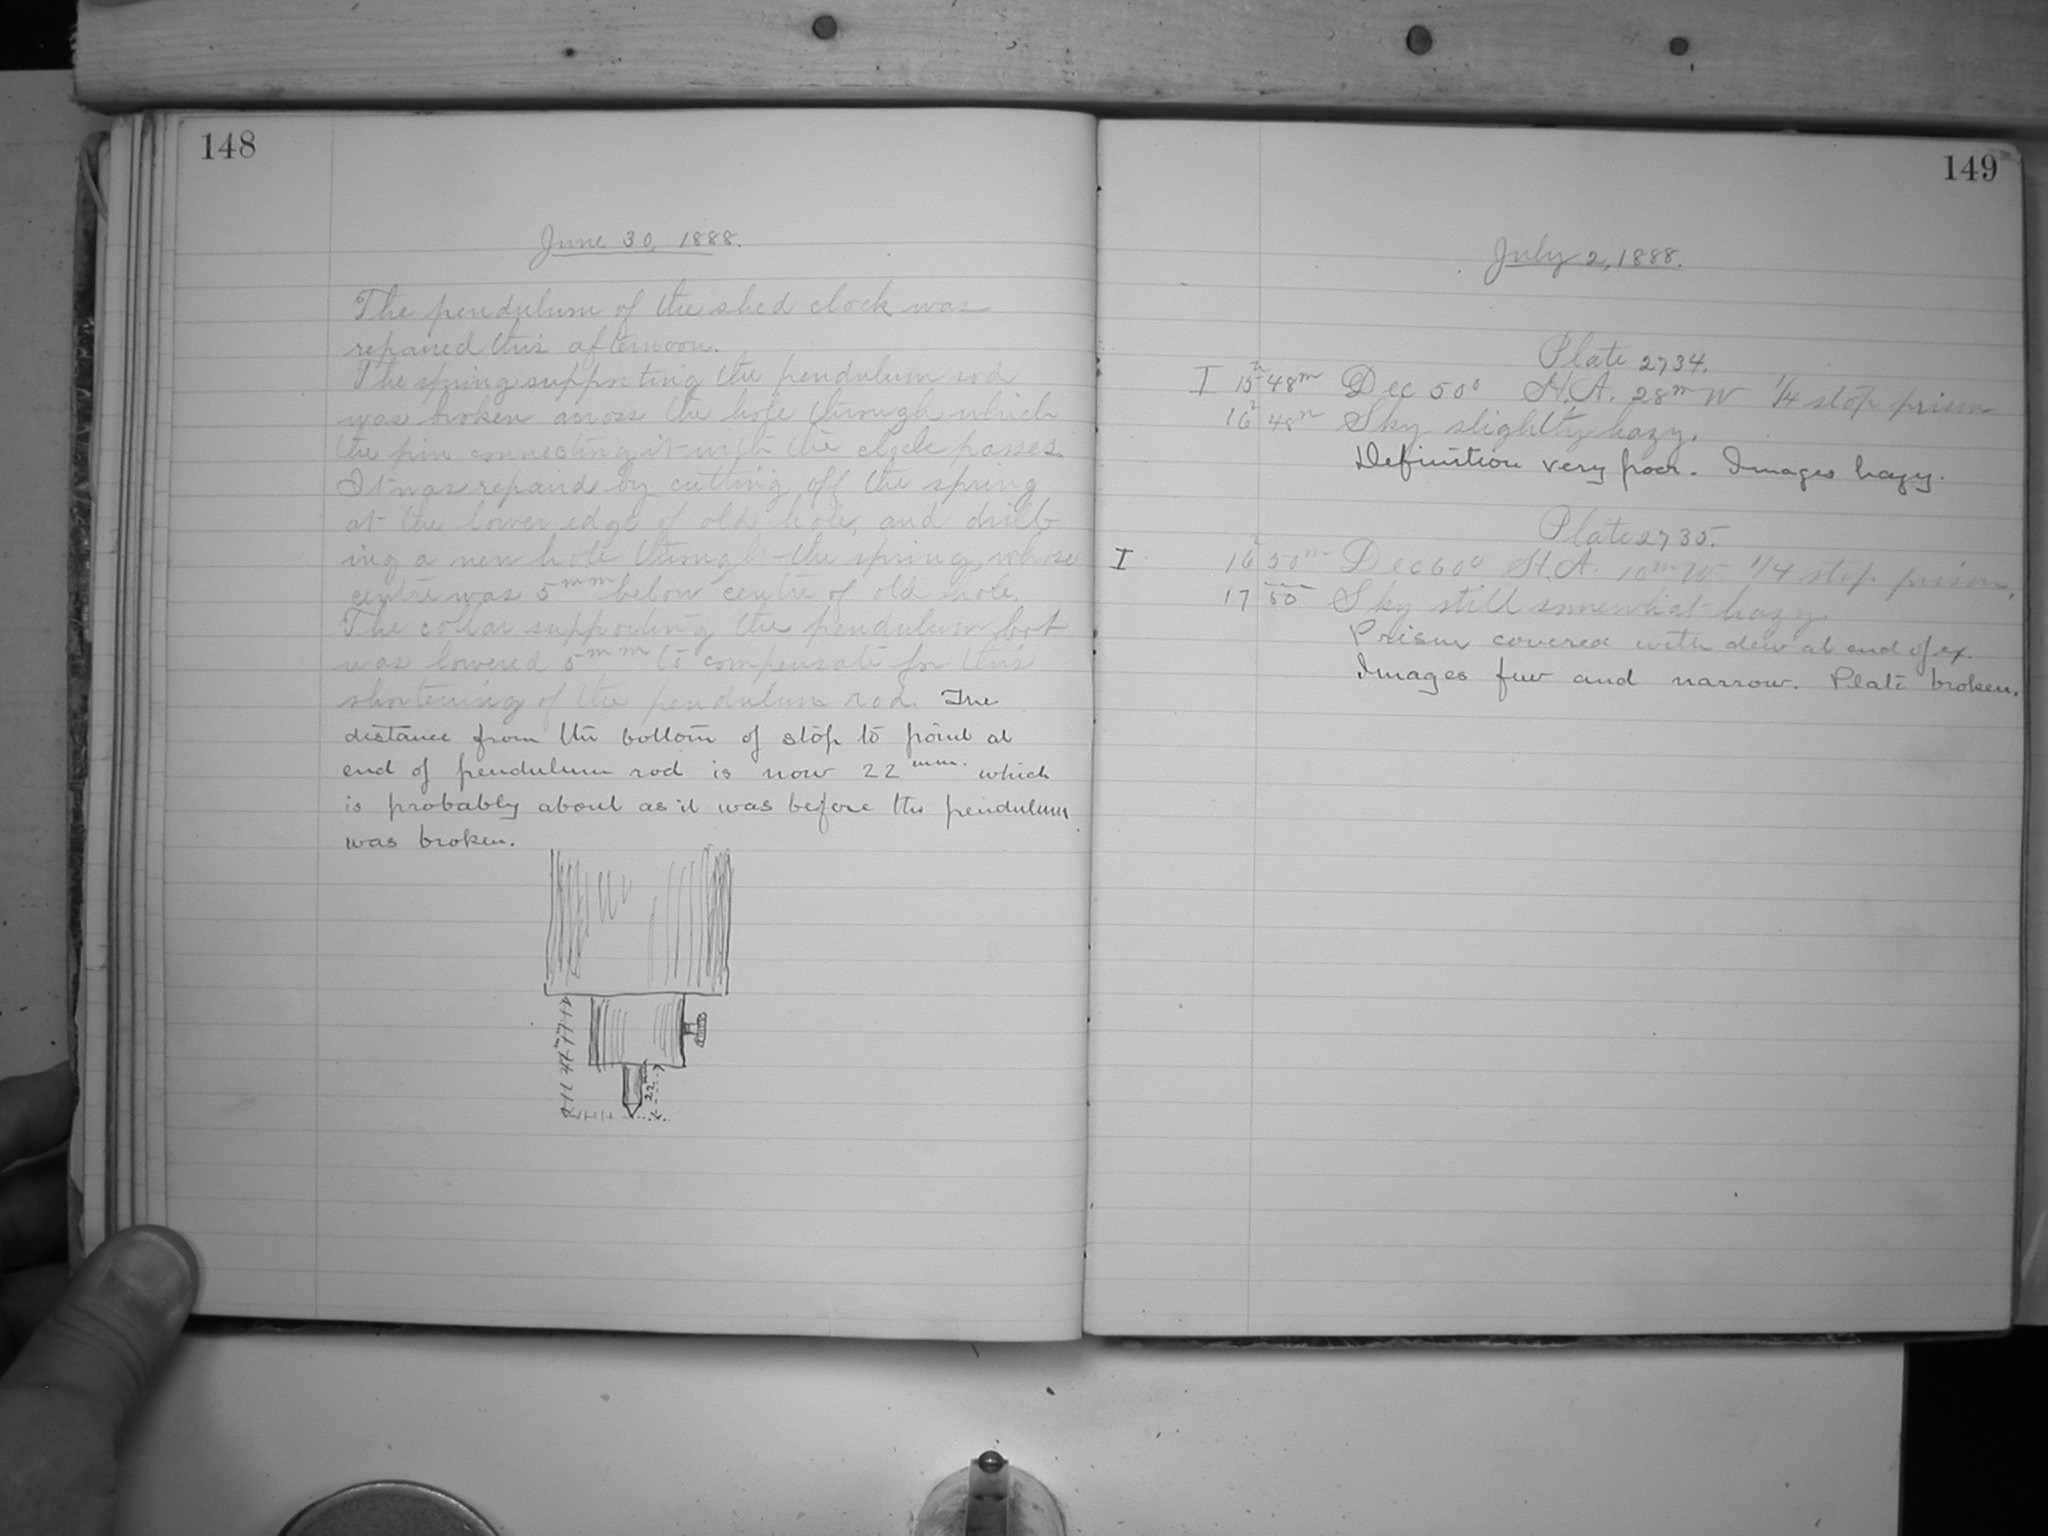 148
June 30, 1888.
The pendulum of the shed clock was
repaired this afternoon.
The spring supporting the pendulum rod
was broken across the hole through which
the pin connecting it with the clock passes.
It was repaird by cutting off the spring
at the lower edge of old hole, and drill-
ing a new hole through the spring, whose
centre was 5mm below centre of old hole.
The collar supporting the pendulum bob
was lowered 5mm to compensate for this
shortening of the pendulum rod. The
distance from the bottom of stop to point at
end of pendulum rod is now 22 mm. which
is probably about as it was before the pendulum
was broken.
22mm
149
July 2, 1888.
Plate 2734.
I 15h 48m Dec 50° H.A. 28m W 1/4 stop prism
16h 48m Sky slightly hazy.
Definition very poor. Images hazy.
Plate 2735.
I 16h 50m Dec 60° H.A. 10m W 1/4 stop prism.
17 50 Sky still somewhat hazy.
Prism covered with dew at end of ex.
Images few and narrow. Plate broken.